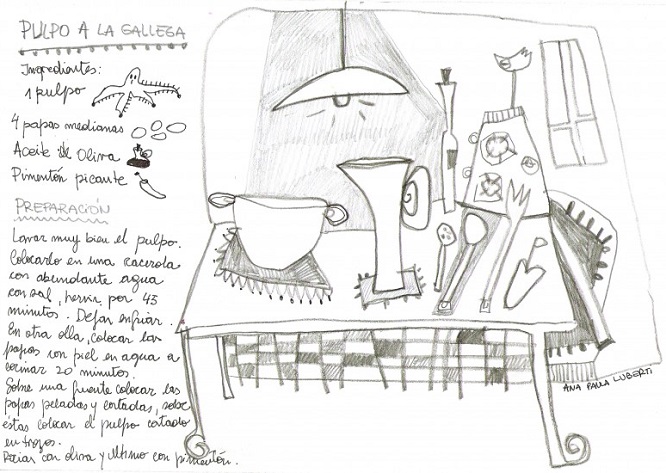 PULPO A LA GALLEGA
Ingredientes:
1 pulpo
4 papas medianas
Aceite de Oliva
Pimentón picante
PREPARACIÓN
Lavar muy bien el pulpo.
Colocarlo en una cacerola
con abundante agua
con sal, hervir por 45
minutos. Dejar enfriar.
En otra olla, colocar las
papas con piel en agua a
cocinar 20 minutos.
Sobre una fuente colocar las
papas peladas y cortadas, sobre
éstas colocar el pulpo cortado
en trozos.
Rociar con oliva y último con pimentón.
ANA PAULA LUBERTI